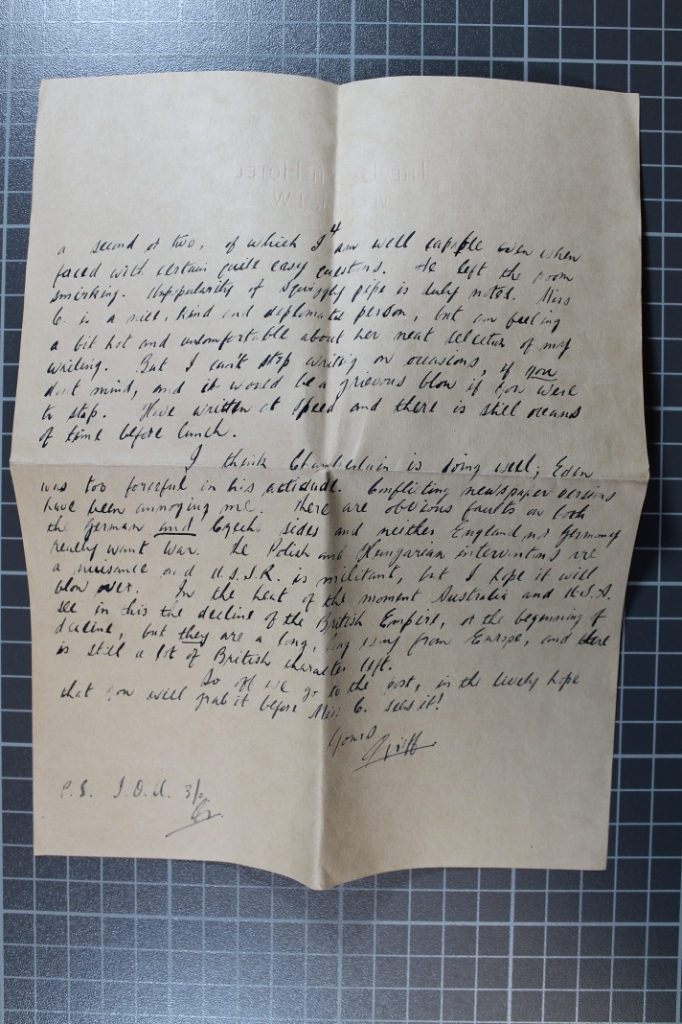 THE HOTEL
4
a second or two, of which I am well capable even when
faced with certain quite easy questons. He left the room
smirking. Unpopularity of Squiggly pipe is duly noted. Miss
C. is a nice, kind and diplomatic person, but am feeling
a bit hot and uncomfortable about her neat selection of my
writing. But I can't stop writing on occasions, if you
dont mind, and it would be a grievous blow if you were
to stop. Have written at speed and there is still oceans
of time before lunch.
I think Chamberlain is doing well; Eden
was too forceful in his attidude. Conflicting newspaper versions
have been annoying me. There are obvious faults on both
the German and Czech sides and neither England nor Germany
really want war. The Polish and Hungarian interventions are
a nuisance and U.S.S.R. is militant, but I hope it will
blow over. In the heat of the moment Australia and U.S.A.
see in this the decline of the British Empire, or the beginning of
decline, but they are a long, long way from Europe, and there
is still a lot of British character left.
So off we go to the post, in the lively hope
that you will grab it before Miss C. sees it!
Yours
Griff
P.S. I.O.U. 3/-